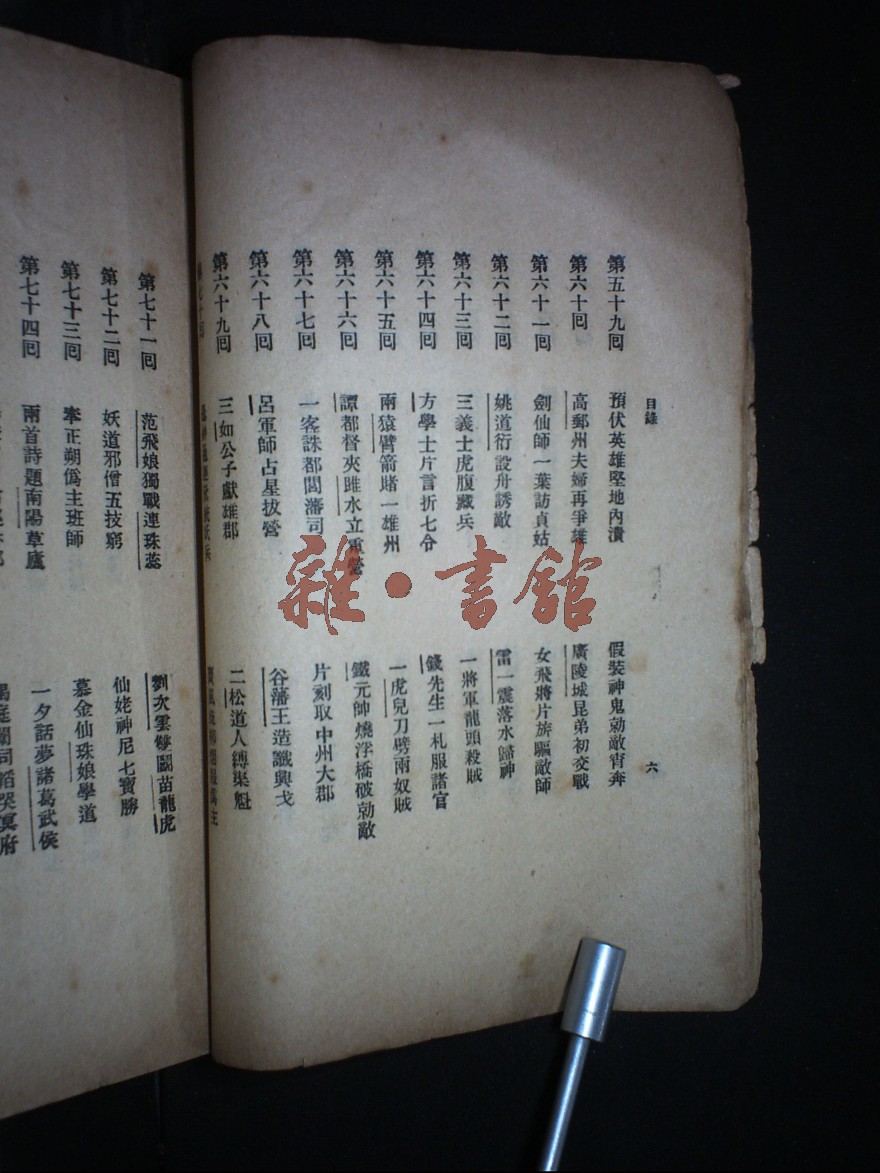 目錄
六
第五十九囘 預伏英雄堅地內潰 假裝神鬼勍敵宵奔
第六十囘 高郵州夫婦再爭雄 廣陵城昆弟初交戰
第六十一囘 劍仙師一葉訪貞姑 女飛將片旂驅敵師
第六十二囘 姚道衍設舟誘敵 雷一震落水歸神
第六十三囘 三義士虎腹藏兵 一將軍龍頭殺賊
第六十四囘 方學士片言折七令 錢先生一札服諸官
第六十五囘 兩猿臂箭賭一雄州 一虎兒刀劈兩奴賊
第六十六囘 譚都督夾睢水立重營 鐵元帥燒浮橋破勍敵
第六十七囘 一客誅都閫藩司 片刻取中州大郡
第六十八囘 呂軍師占星拔營 谷藩王造讖興戈
第六十九囘 三如公子獻雄郡 二松道人縛渠魁
第七十一囘 范飛娘獨戰連珠蕊 劉次雲雙鬭苗龍虎
第七十二囘 妖道邪僧五技窮 仙姥神尼七寶勝
第七十三囘 李正朔僞主班師 慕金仙珠娘學道
第七十四囘 兩首詩題南陽草廬 一夕話夢諸葛武侯
雜·書館